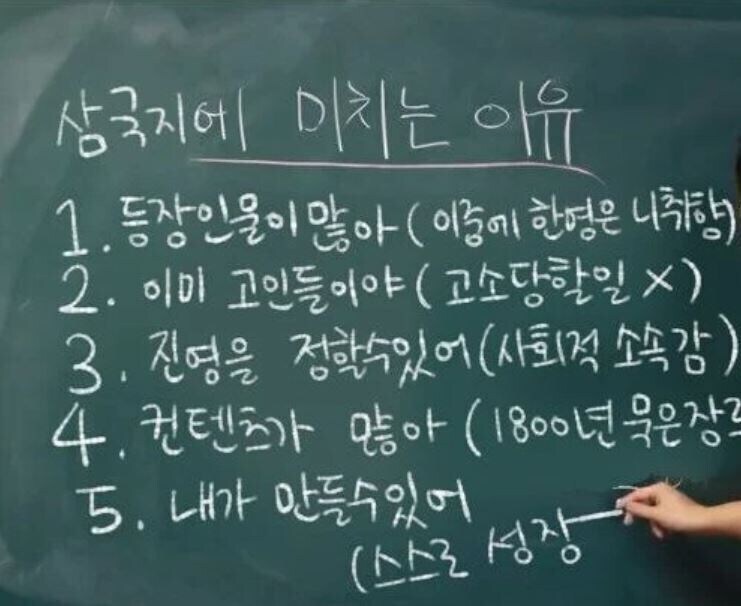 삼국지에 미치는 이유
1. 등장인물이 많아 (이중에 한영은 니취향)
2. 이미 고인들이야 (고소당할일 X)
3. 진영을 정할수있어 (사회적 소속감)
4. 컨텐츠가 많아 (1800년 묵은장르
5. 내가 만들수있어
(스스로 성장